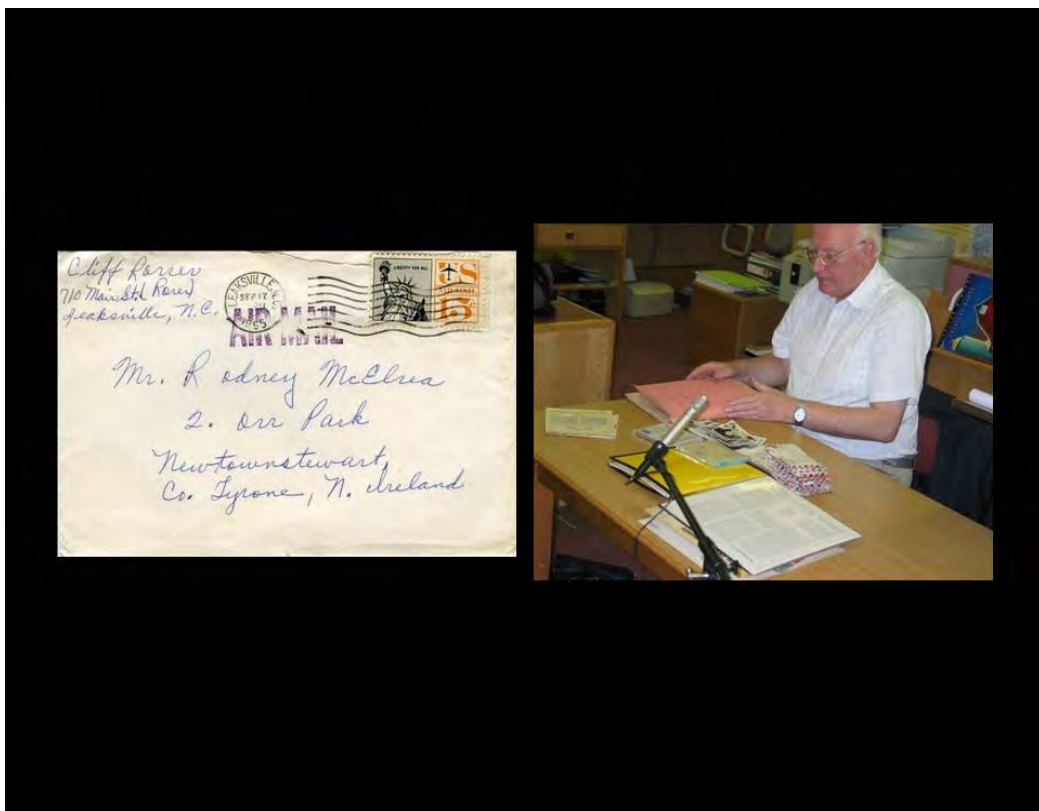 Cliff Rorrer
710 Main St. (Rorer)
Leaksville, N.C.
LEAKSVILLE, N.C.
SEP 17
1965
AIR MAIL
LIBERTY FOR ALL
US
AIR MAIL
15¢
Mr. Rodney McElrea
2. Orr Park
Newtownstewart,
Co. Tyrone, N. Ireland